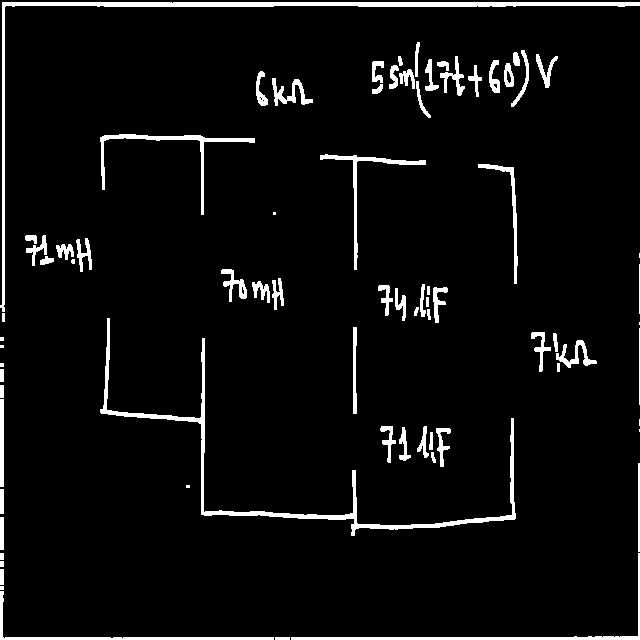 6kΩ
5sin(17t+60°)V
71mH
70mH
74µF
7kΩ
71µF